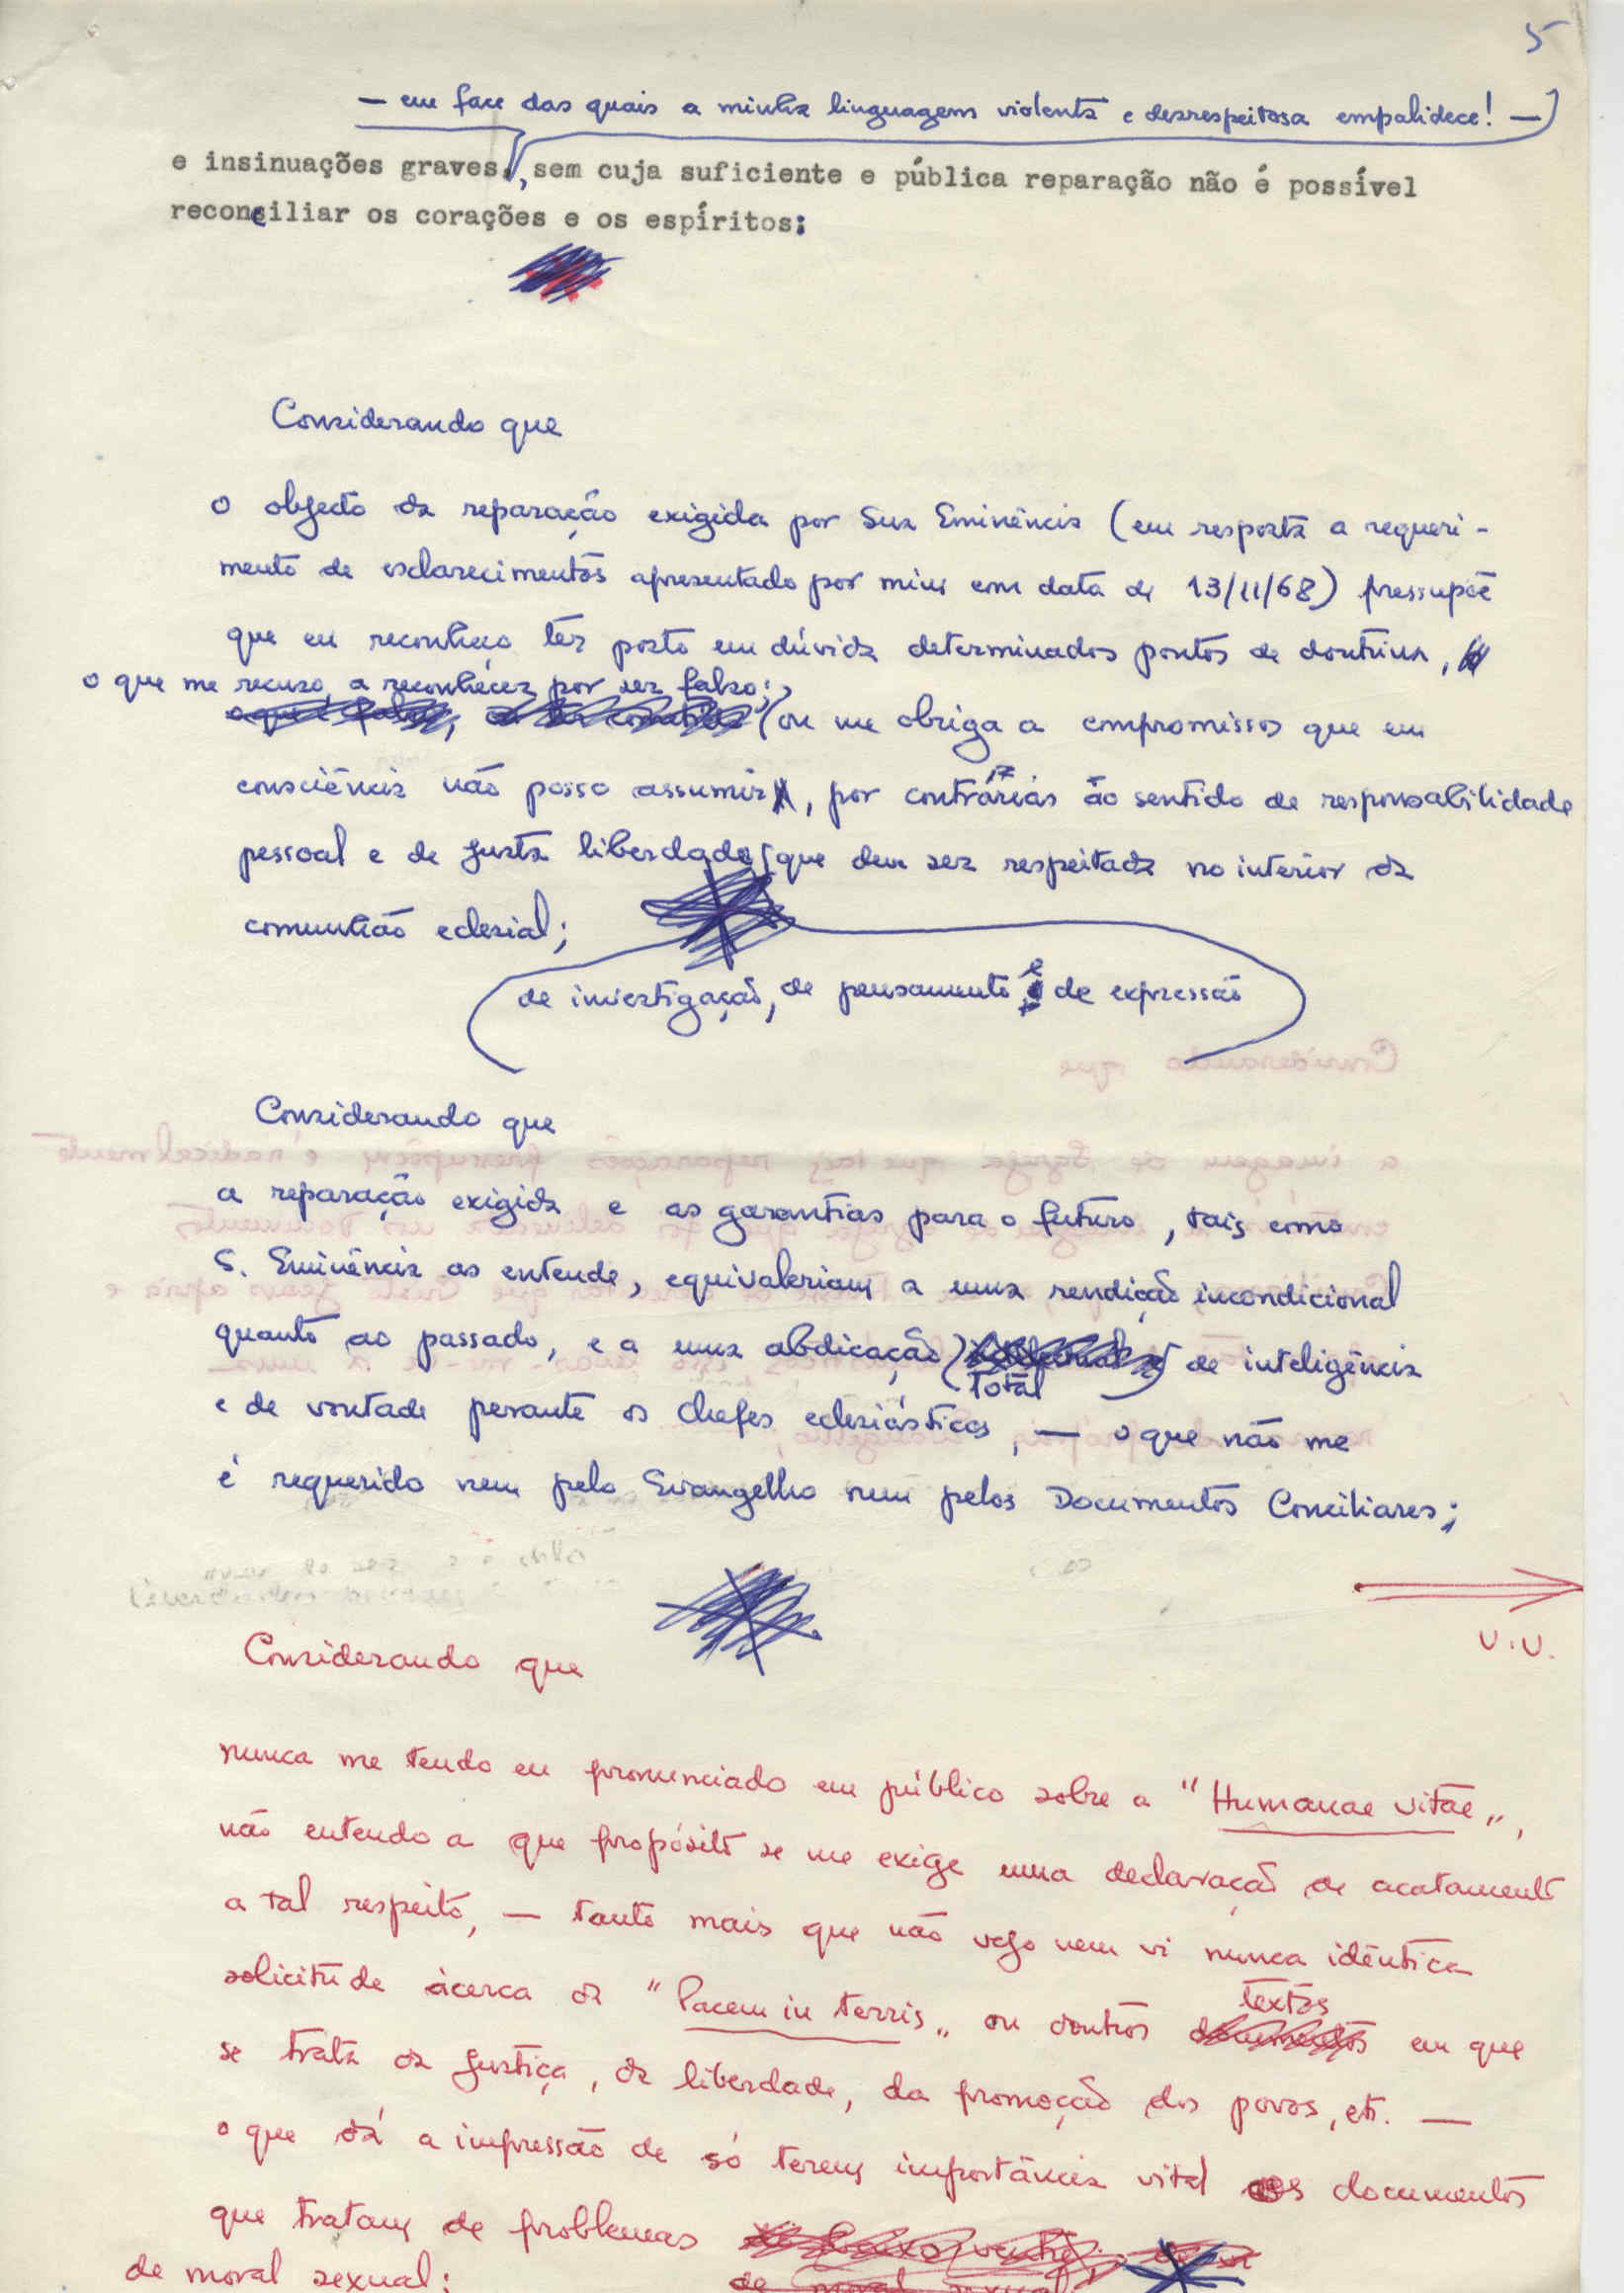 5
— em face das quais a minha linguagem violenta e desrespeitosa empalidece! —
e insinuações graves, sem cuja suficiente e pública reparação não é possível
reconciliar os corações e os espíritos;
Considerando que
o objecto da reparação exigida por Sua Eminência (em resposta a requeri-
mento de esclarecimentos apresentado por mim em data de 13/11/68) pressupõe
que eu reconheço ter posto em dúvida determinados pontos de doutrina,
o que me recuso a reconhecer por ser falso;
ou me obriga a compromissos que em
consciência não posso assumir, por contrários ao sentido de responsabilidade
pessoal e de justa liberdade que deve ser respeitada no interior da
comunhão eclesial;
de investigação, de pensamento e de expressão
Considerando que
a reparação exigida e as garantias para o futuro, tais como
S. Eminência as entende, equivaleriam a uma rendição incondicional
quanto ao passado, e a uma abdicação de inteligência
total
e de vontade perante os chefes eclesiásticos, — o que não me
é requerido nem pelo Evangelho nem pelos Documentos Conciliares;
V.V.
Considerando que
nunca me tendo eu pronunciado em público sobre a "Humanae vitae",
não entendo a que propósito se me exige uma declaração de acatamento
a tal respeito, — tanto mais que não vejo nem vi nunca idêntica
solicitude àcerca da "Pacem in terris" ou doutros documentos em que
textos
se trata da justiça, da liberdade, da promoção dos povos, etc. —
o que dá a impressão de só terem importância vital os documentos
que tratam de problemas
de moral sexual; de moral sexual